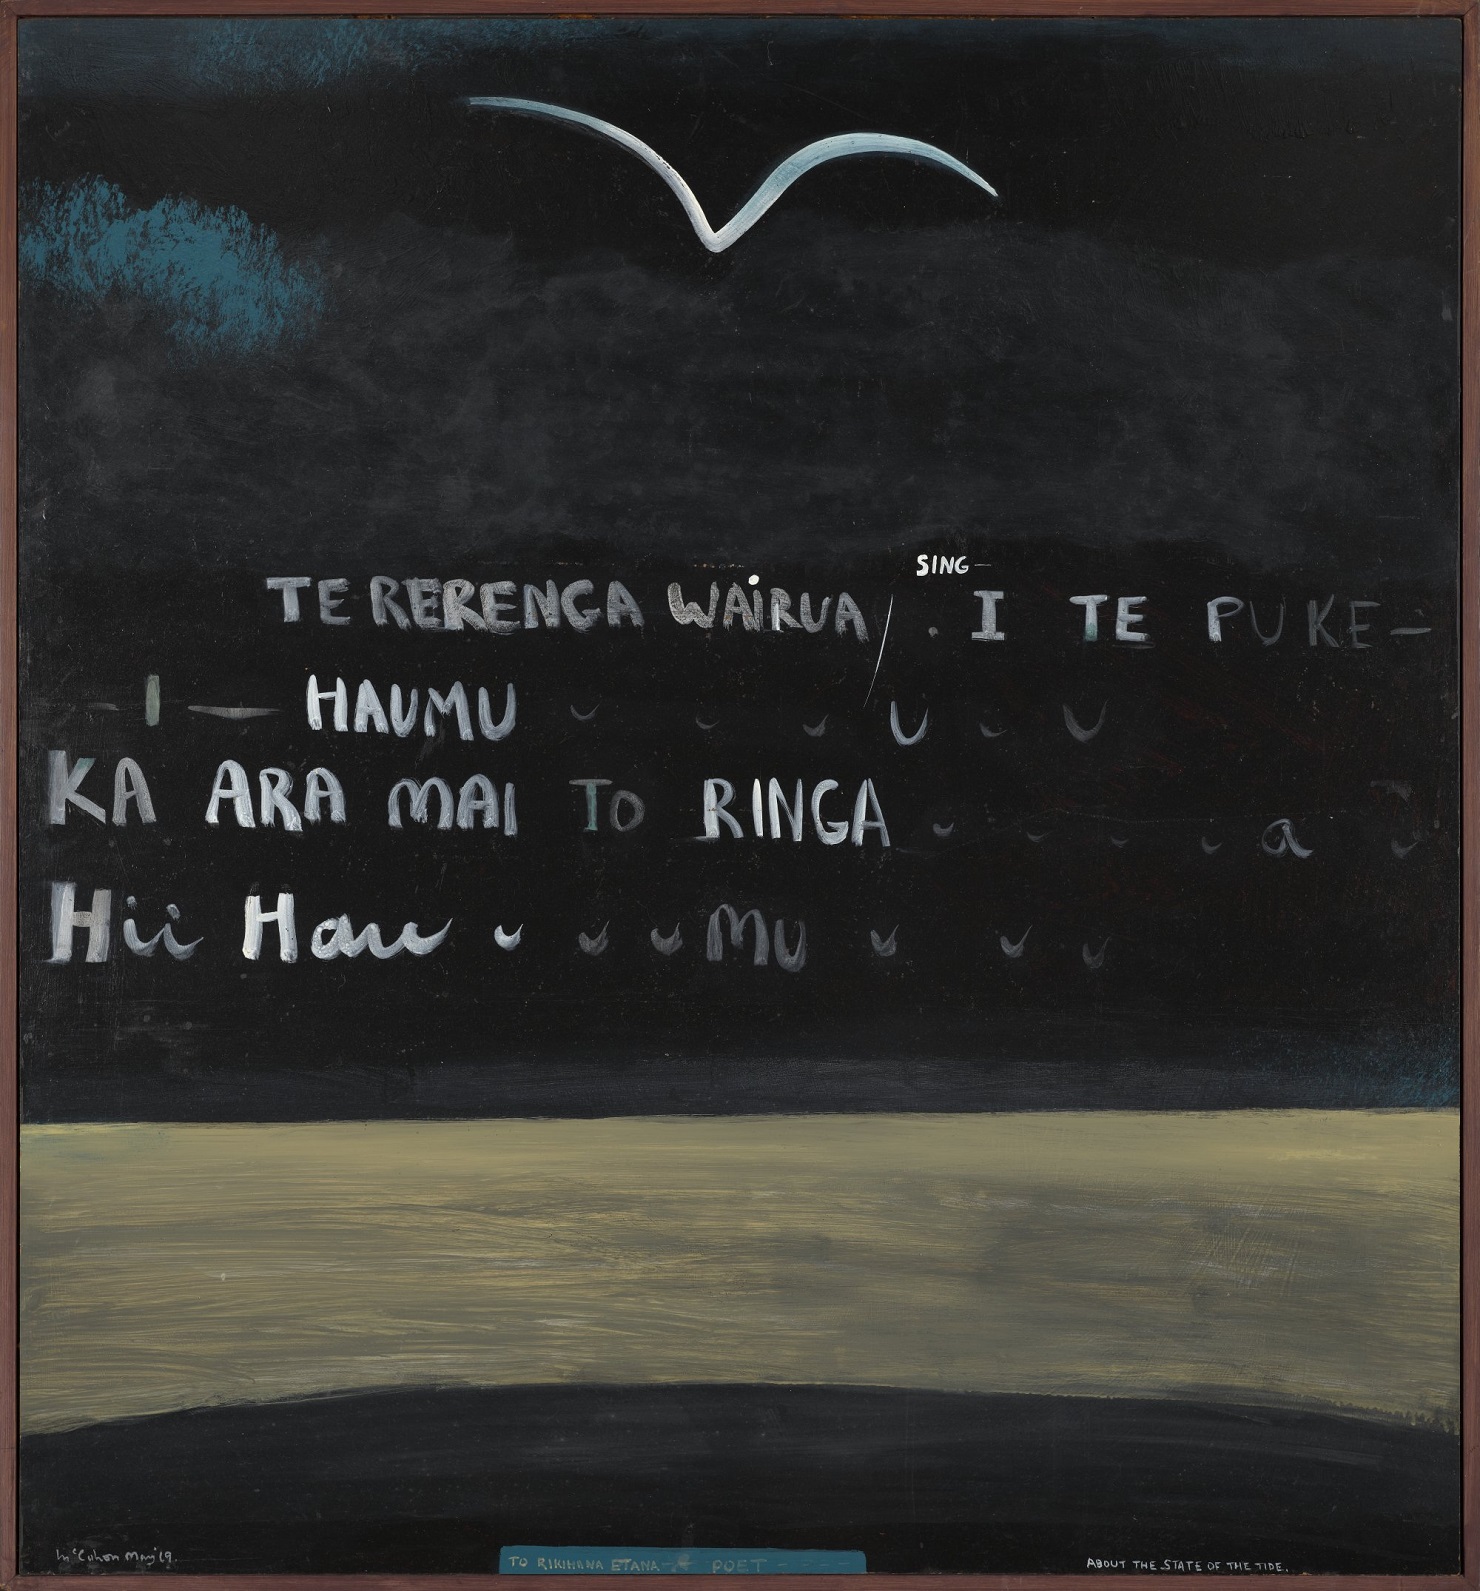 SING—
TE RERENGA WAiRUA / . I TE PUKE—
— I — HAUMU ᴗ ᴗ ᴗ U ᴗ U
KA ARA MAI TO RINGA ᴗ ᴗ ᴗ ᴗ a ᴗ
Hii Hau ᴗ ᴗ ᴗ MU ᴗ ᴗ ᴗ
McCahon May '69.
TO RIKIHANA ETANA — A POET
ABOUT THE STATE OF THE TIDE.